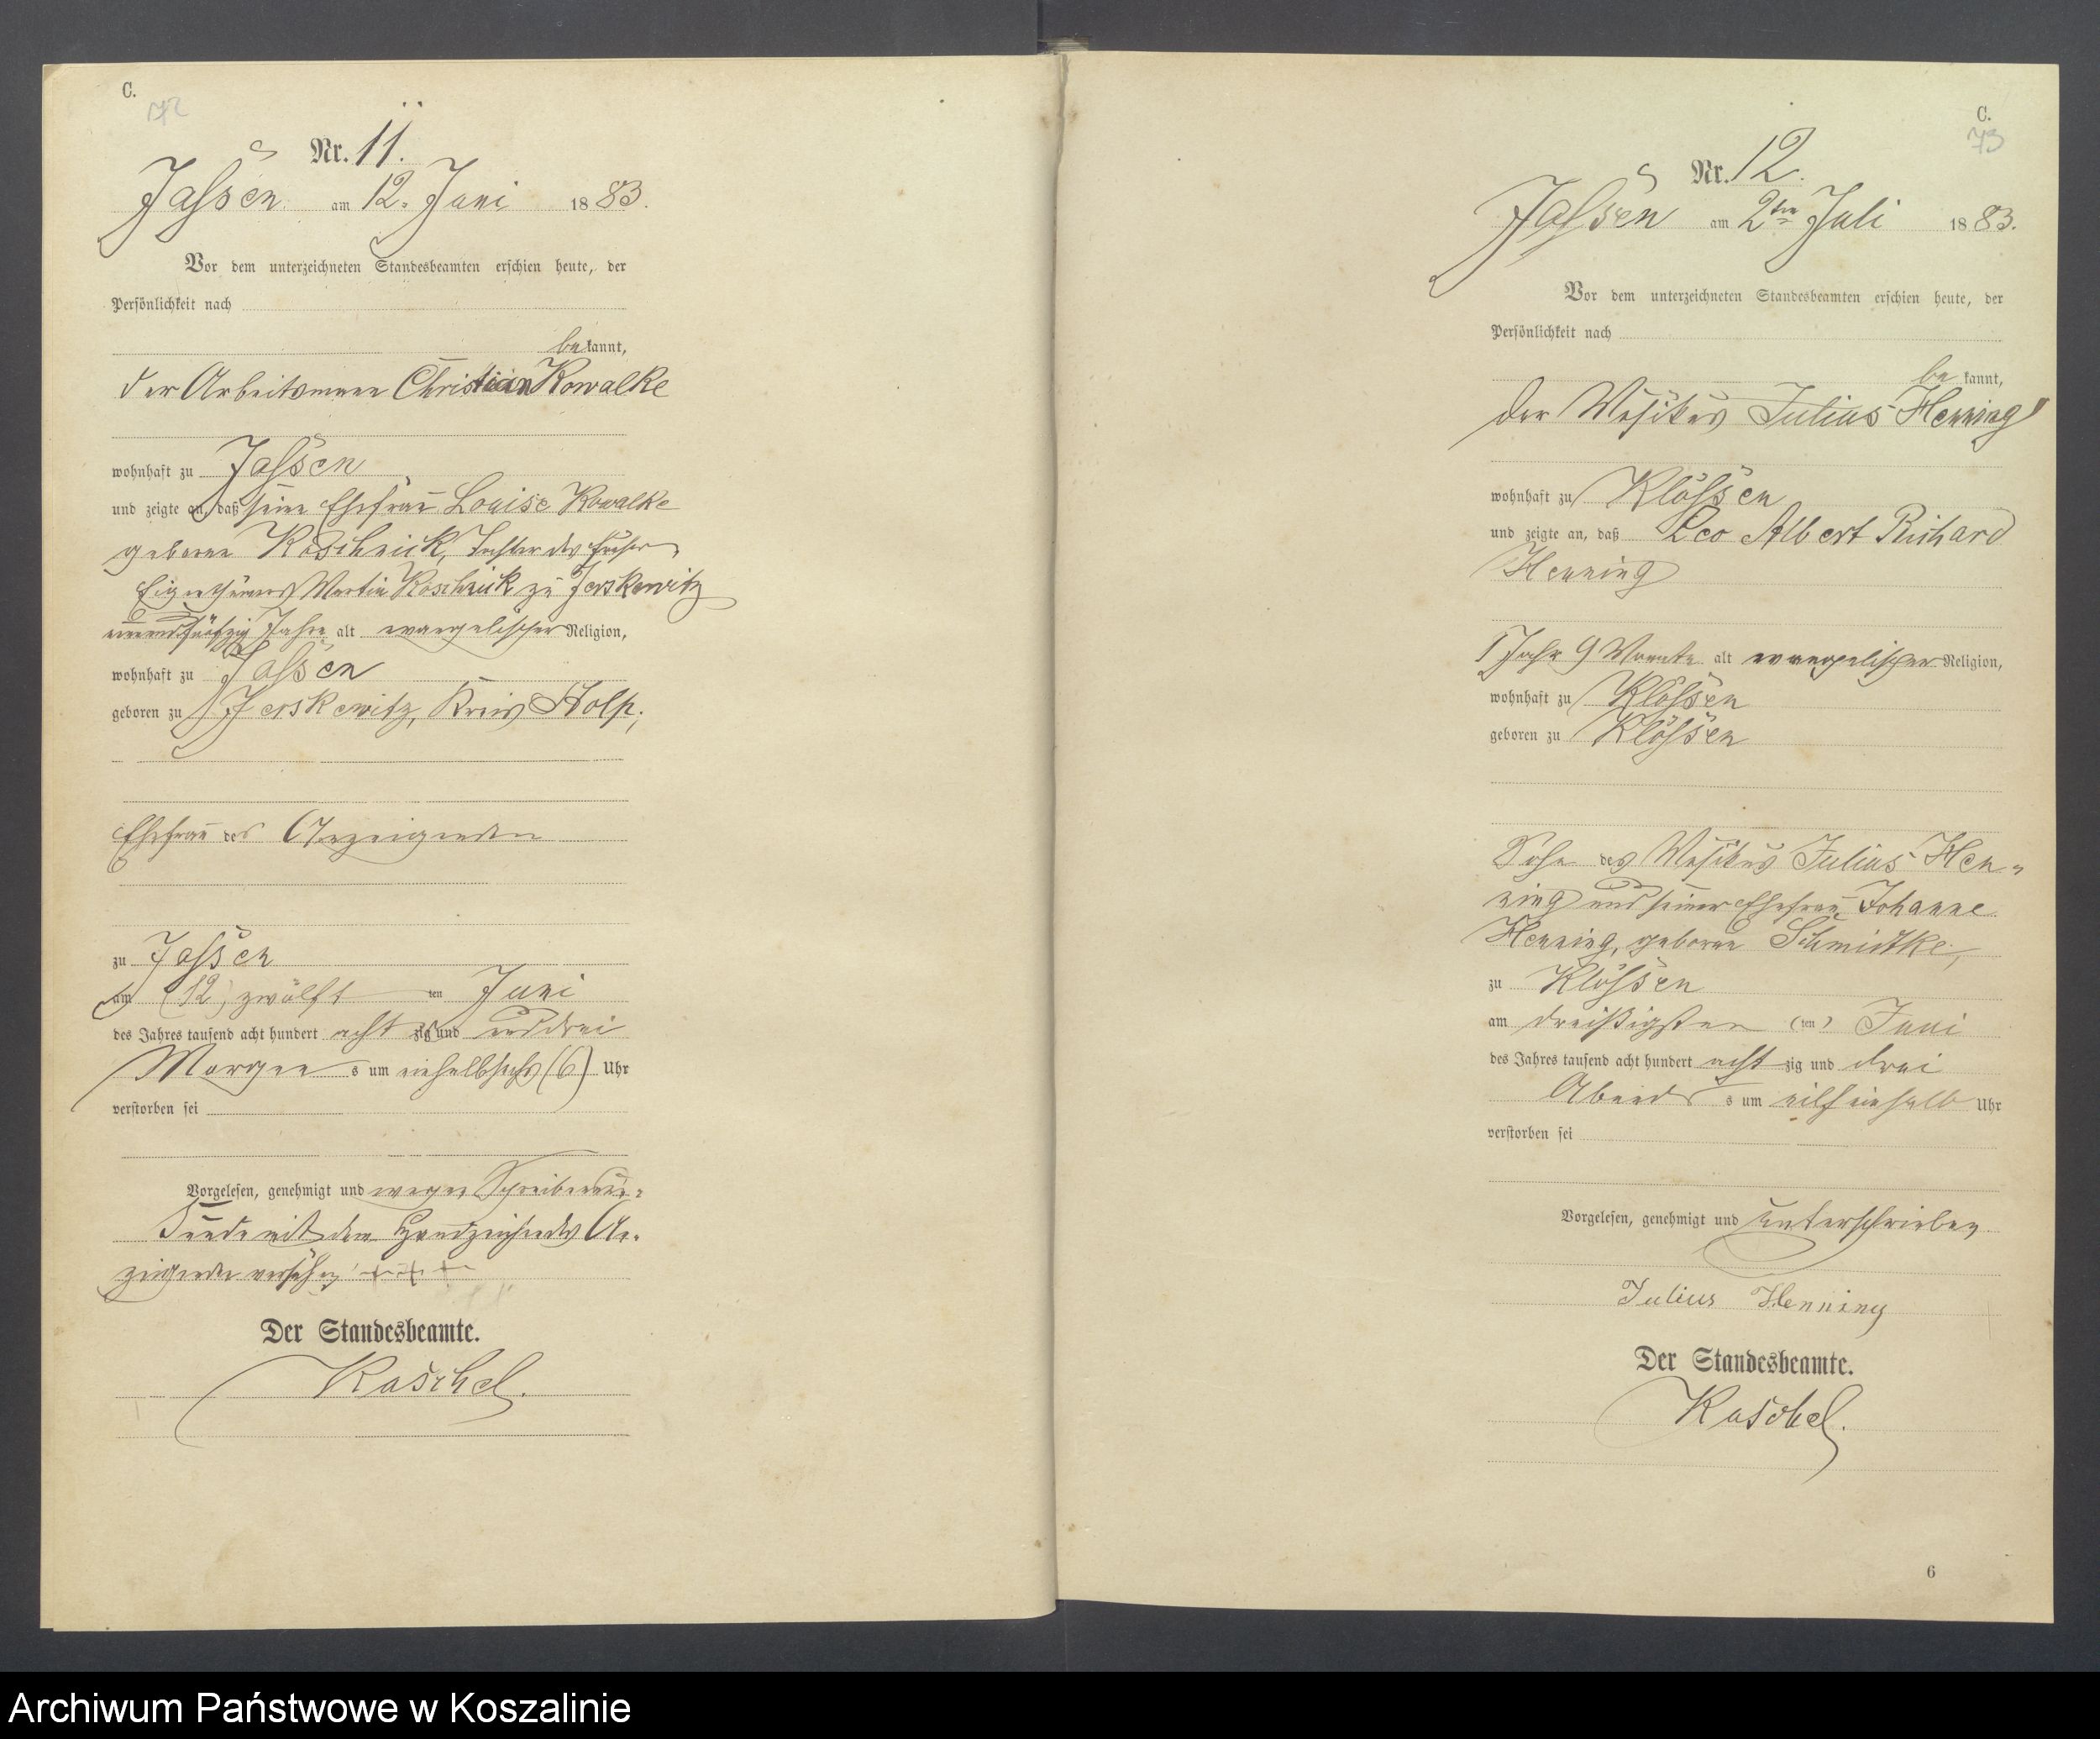 C.
72
Nr. 11.
Jassen am 12. Juni 1883.
Vor dem unterzeichneten Standesbeamten erschien heute, der
Persönlichkeit nach
bekannt,
der Arbeitsmann Christian Kowalke
wohnhaft zu Jassen
und zeigte an, daß seine Ehefrau Louise Kowalke
geborne Koschnick, Tochter des
Eigenthümers Martin Koschnick zu Jerskewitz
Jahre alt evangelischer Religion,
wohnhaft zu Jassen
geboren zu Jerskewitz, Kreis Stolp,
Ehefrau des Anzeigenden
zu Jassen
am (12) zwölft ten Juni
des Jahres tausend acht hundert acht zig und und drei
Morgens um einhalbsechs (6) Uhr
verstorben sei
Vorgelesen, genehmigt und wegen Schreibensun-
kunde mit dem Handzeichen des An-
zeigenden versehen +++
Der Standesbeamte.
Kaschel.
C.
73
Nr. 12.
Jassen am 2ten Juli 1883.
Vor dem unterzeichneten Standesbeamten erschien heute, der
Persönlichkeit nach
bekannt,
der Musikus Julius Henning
wohnhaft zu Klössen
und zeigte an, daß Leo Albert Richard
Henning
1 Jahr 9 Monate alt evangelischer Religion,
wohnhaft zu Klössen
geboren zu Klössen
Sohn des Musikus Julius Hen-
ning und seiner Ehefrau Johanne
Henning, geborne Schmidtke,
zu Klössen
am dreißigsten (ten) Juni
des Jahres tausend acht hundert acht zig und drei
Abends um eilfeinhalb Uhr
verstorben sei
Vorgelesen, genehmigt und unterschrieben
Julius Henning
Der Standesbeamte.
Kaschel.
6
Archiwum Państwowe w Koszalinie